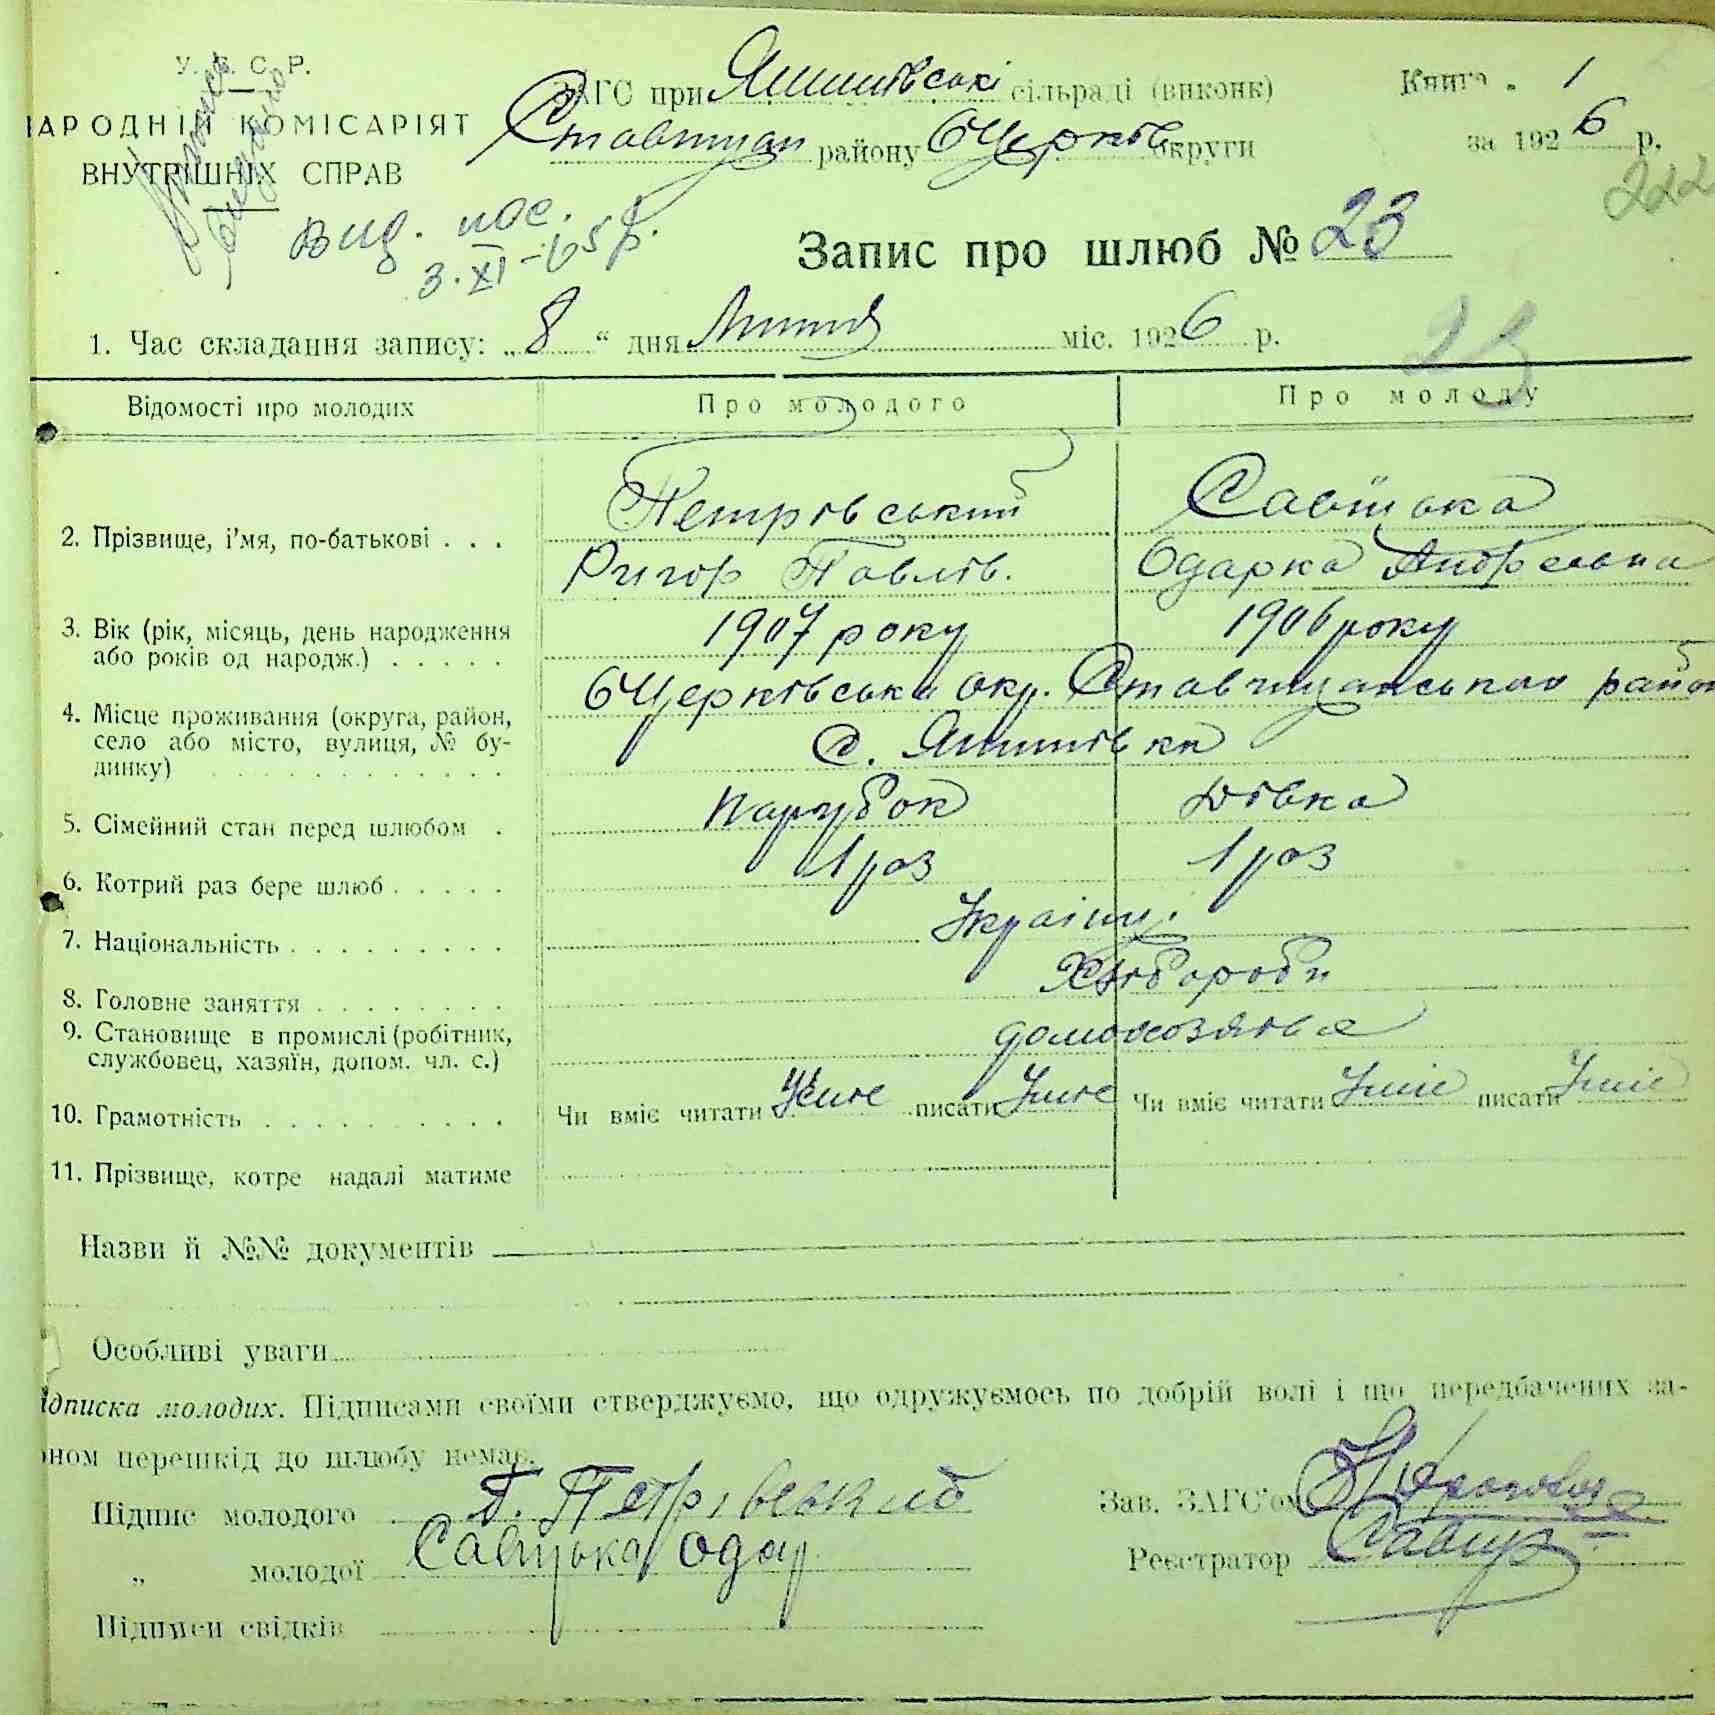 У.С.С.Р.
НАРОДНІЙ КОМІСАРІЯТ
ВНУТРІШНІХ СПРАВ
Вид. пос.
3.XI-65 р.
ЗАГС при Яшнівські сільраді (виконк)
Ставищан району БЦерків округи
Книга 1
за 1926 р.
222
Запис про шлюб № 23
23
1. Час складання запису: „ 8 “ дня Липня міс. 1926 р.
Відомості про молодих Про молодого Про молоду
2. Прізвище, і’мя, по-батькові . . . Петрівський Савіцька
Ригор Павлів. Одарка Андреевна
3. Вік (рік, місяць, день народження 1907 року 1906 року
або років од народж.) . . . . .
4. Місце проживання (округа, район, БЦерківська окр. Ставищанського район
село або місто, вулиця, № бу-
динку) . . . . . . . . . . . .
5. Сімейний стан перед шлюбом . Парубок Дівка
6. Котрий раз бере шлюб . . . . . 1 раз 1 раз
7. Національність . . . . . . . . . Україн.
8. Головне заняття . . . . . . . . Хлібороби
9. Становище в промислі (робітник,
службовец, хазяїн, допом. чл. с.)
10. Грамотність . . . . . . . . . . Чи вміє читати Уміє писати Уміє Чи вміє читати Уміє писати Уміє
11. Прізвище, котре надалі матиме
Назви й №№ документів
Особливі уваги
ідписка молодих. Підписами своїми стверджуємо, що одружуємось по добрій волі і що передбачених за-
оном перешкід до шлюбу немає.
Підпис молодого Г. Петрівський Зав. ЗАГС’ом
„ молодої Савіцька Одар Реєстратор Савиц
Підписи свідків